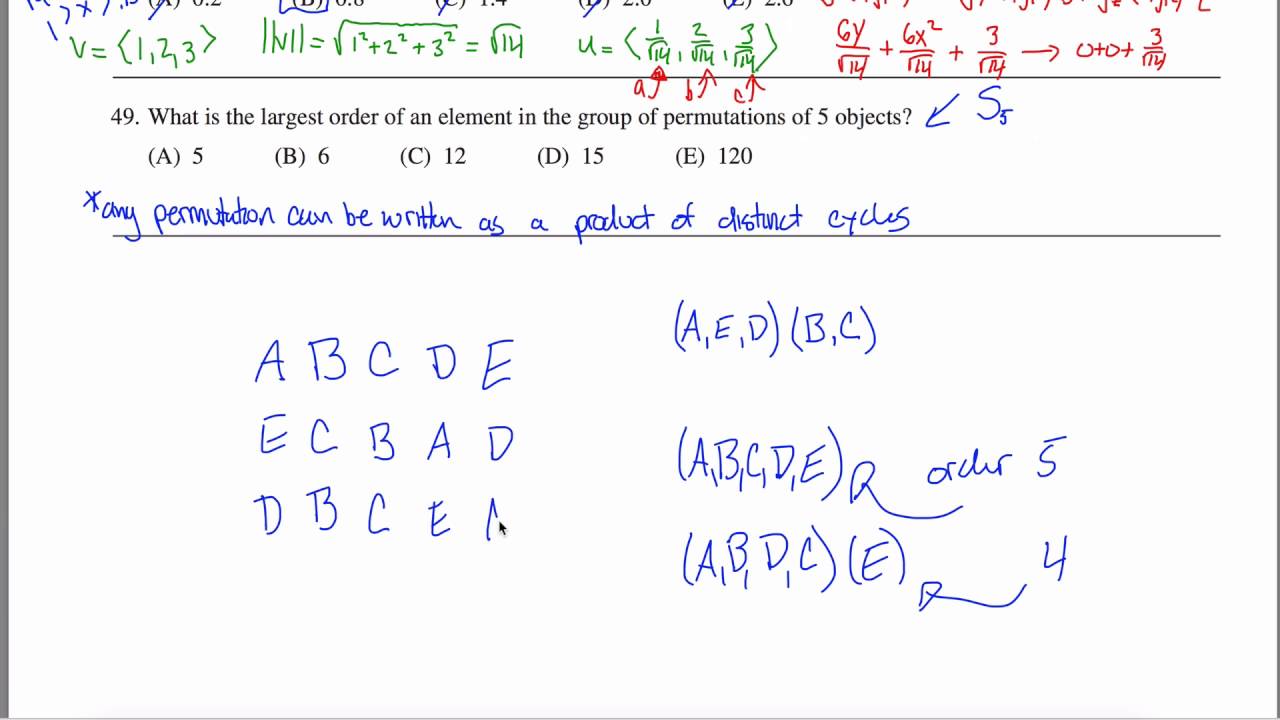 (A) 0.2 (B) 0.8 (C) 1.4 (D) 2.0 (E) 2.6
V = ⟨1,2,3⟩ ||V|| = √1²+2²+3² = √14 u = ⟨1/√14, 2/√14, 3/√14⟩ 6y/√14 + 6x²/√14 + 3/√14 → 0+0+ 3/√14
a b c
49. What is the largest order of an element in the group of permutations of 5 objects? S₅
(A) 5 (B) 6 (C) 12 (D) 15 (E) 120
*any permutation can be written as a product of distinct cycles
(A,E,D)(B,C)
A B C D E
E C B A D
(A,B,C,D,E) order 5
D B C E
(A,B,D,C)(E) 4